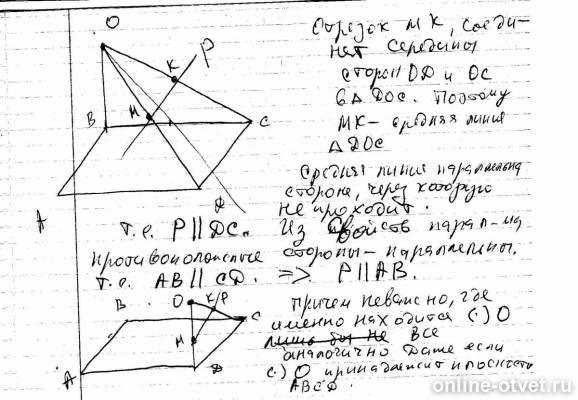 O
K P
M
B C
A D
Отрезок МК, соеди-
няет середины
сторон ОD и ОС
в Δ DOC. Поэтому
МК - средняя линия
Δ DOC
Средняя линия параллельна
стороне, через которую
не проходит.
т.е. P || DC. Из свойств парал-ма
противоположные стороны - параллельны.
т.е. AB || CD. => P || AB.
B O K P C
M
A D
Причем неважно, где
именно находится (·) О
все
аналогично даже если
(·) О принадлежит плоскости
ABCD.
online-otvet.ru